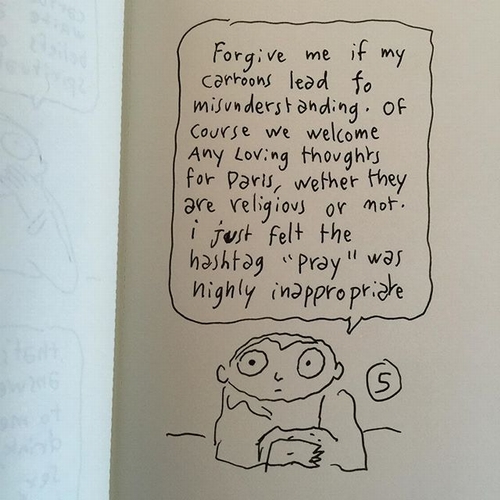 Forgive me if my
cartoons lead to
misunderstanding. Of
course we welcome
Any Loving thoughts
for Paris, wether they
are religious or not.
i just felt the
hashtag "pray" was
highly inappropriate
5